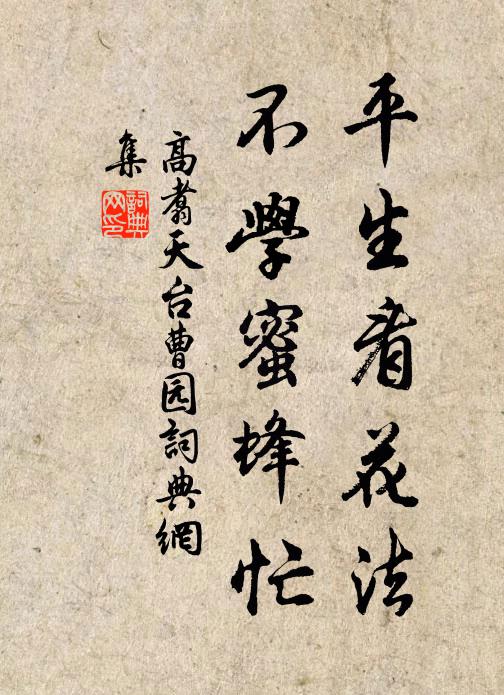 平生看花法
不學蜜蜂忙
高翥天台曹园詞典網
集
詞典网印